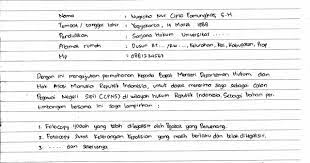 Nama : Nugroho Nur Cipto Pamungkas, S.H
Tempat / tanggal lahir : Yogyakarta, 14 Maret 1988
Pendidikan : Sarjana Hukum Universitas .....
Alamat rumah : Dusun RT.../RW..., Kelurahan, Kec, Kabupaten, Prop
Hp : 0881234567
Dengan ini mengajukan permohonan kepada Bapak Menteri Departemen Hukum dan
Hak Asasi Manusia Republik Indonesia, untuk dapat menerima saya sebagai Calon
Pegawai Negeri Sipil (CPNS) di wilayah hukum Republik Indonesia. Sebagai bahan per-
timbangan bersama ini saya lampirkan :
1. Fotocopy Ijazah yang telah dilegalisir oleh Pejabat yang Berwenang.
2. Fotocopy Surat Keterangan Kepolisian yang masih berlaku dan telah dilegalisir.
3. ..... dan seterusnya.